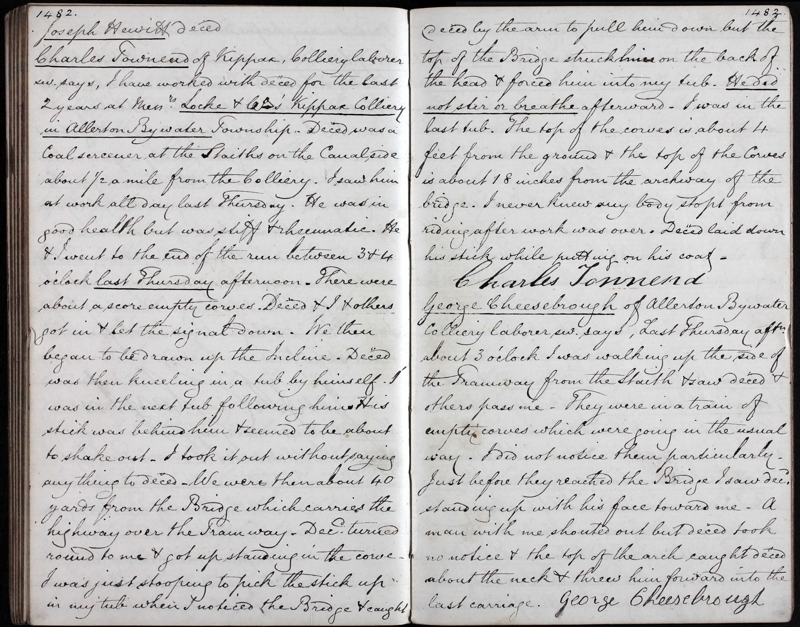 1482.
Joseph Hewitt deced
Charles Townend of Kippax, Colliery laborer
sw. says, I have worked with deced for the last
2 years at Messrs Locke & Co's Kippax Colliery
in Allerton Bywater Township - Deced was a
Coal screener at the Staiths on the Canal side
about 1/2 a mile from the Colliery. I saw him
at work all day last Thursday. He was in
good health but was stiff & rheumatic. He
& I went to the end of the run between 3 & 4
oclock last Thursday afternoon. There were
about a score empty corves. Deced & I & others
got in & let the signal down. We then
began to be drawn up the Incline. Deced
was then kneeling in a tub by himself. I
was in the next tub following him. His
stick was behind him & seemed to be about
to shake out. I took it out without saying
any thing to deced. We were then about 40
yards from the Bridge which carries the
highway over the Tramway. Decd. turned
round to me & got up standing in the corve.
I was just stooping to pick the stick up
in my tub when I noticed the Bridge & caught
1482.
deced by the arm to pull him down but the
top of the Bridge struck him on the back of
the head & forced him into my tub. He did
not stir or breathe afterward. I was in the
last tub. The top of the corves is about 4
feet from the ground & the top of the Corves
is about 18 inches from the archway of the
bridge. I never knew any body stopt from
riding after work was over. Deced laid down
his stick while putting on his coat -
Charles Townend
George Cheesebrough of Allerton Bywater
Colliery laborer, sw. says, Last Thursday aftn
about 3 oclock I was walking up the side of
the Tramway from the Staith & saw deced &
others pass me. They were in a train of
empty corves which were going in the usual
way. I did not notice them particularly.
Just before they reached the Bridge I saw decd.
standing up with his face toward me. A
man with me shouted out but deced took
no notice & the top of the arch caught deced
about the neck & threw him forward into the
last carriage. George Cheesebrough